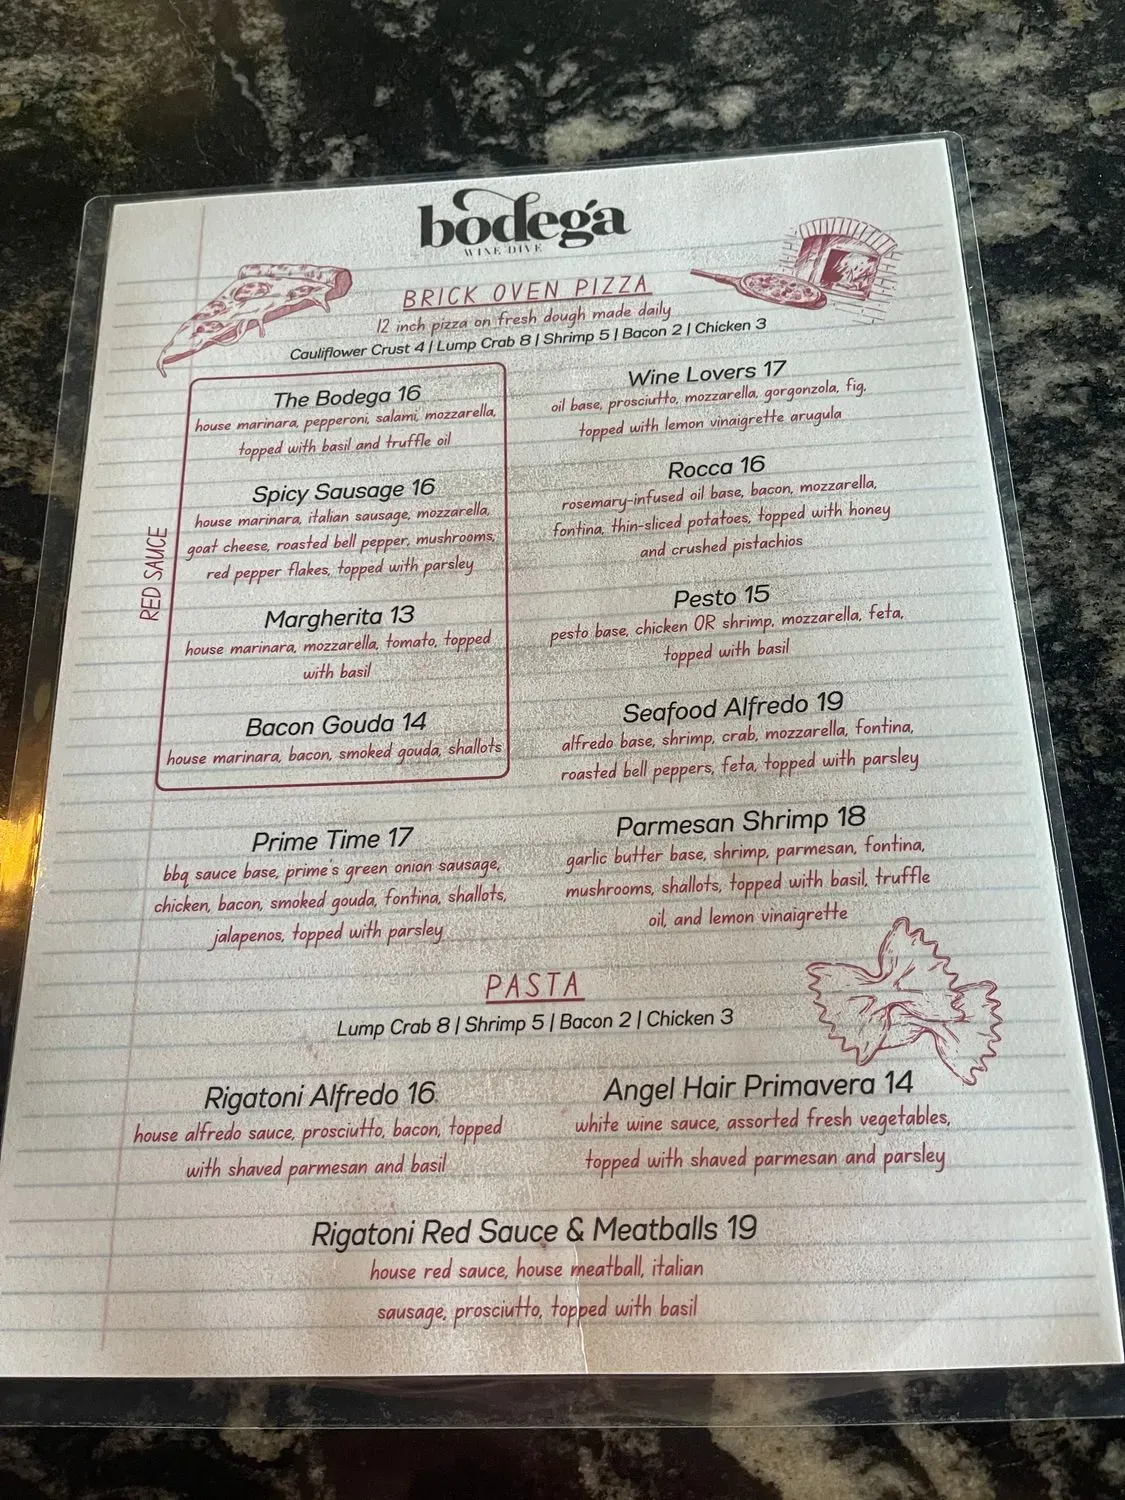 bodega
WINE DIVE
BRICK OVEN PIZZA
12 inch pizza on fresh dough made daily
Cauliflower Crust 4 | Lump Crab 8 | Shrimp 5 | Bacon 2 | Chicken 3
RED SAUCE
The Bodega 16
house marinara, pepperoni, salami, mozzarella,
topped with basil and truffle oil
Spicy Sausage 16
house marinara, italian sausage, mozzarella,
goat cheese, roasted bell pepper, mushrooms,
red pepper flakes, topped with parsley
Margherita 13
house marinara, mozzarella, tomato, topped
with basil
Bacon Gouda 14
house marinara, bacon, smoked gouda, shallots
Prime Time 17
bbq sauce base, prime's green onion sausage,
chicken, bacon, smoked gouda, fontina, shallots,
jalapenos, topped with parsley
Wine Lovers 17
oil base, prosciutto, mozzarella, gorgonzola, fig,
topped with lemon vinaigrette arugula
Rocca 16
rosemary-infused oil base, bacon, mozzarella,
fontina, thin-sliced potatoes, topped with honey
and crushed pistachios
Pesto 15
pesto base, chicken OR shrimp, mozzarella, feta,
topped with basil
Seafood Alfredo 19
alfredo base, shrimp, crab, mozzarella, fontina,
roasted bell peppers, feta, topped with parsley
Parmesan Shrimp 18
garlic butter base, shrimp, parmesan, fontina,
mushrooms, shallots, topped with basil, truffle
oil, and lemon vinaigrette
PASTA
Lump Crab 8 | Shrimp 5 | Bacon 2 | Chicken 3
Rigatoni Alfredo 16
house alfredo sauce, prosciutto, bacon, topped
with shaved parmesan and basil
Angel Hair Primavera 14
white wine sauce, assorted fresh vegetables,
topped with shaved parmesan and parsley
Rigatoni Red Sauce & Meatballs 19
house red sauce, house meatball, italian
sausage, prosciutto, topped with basil